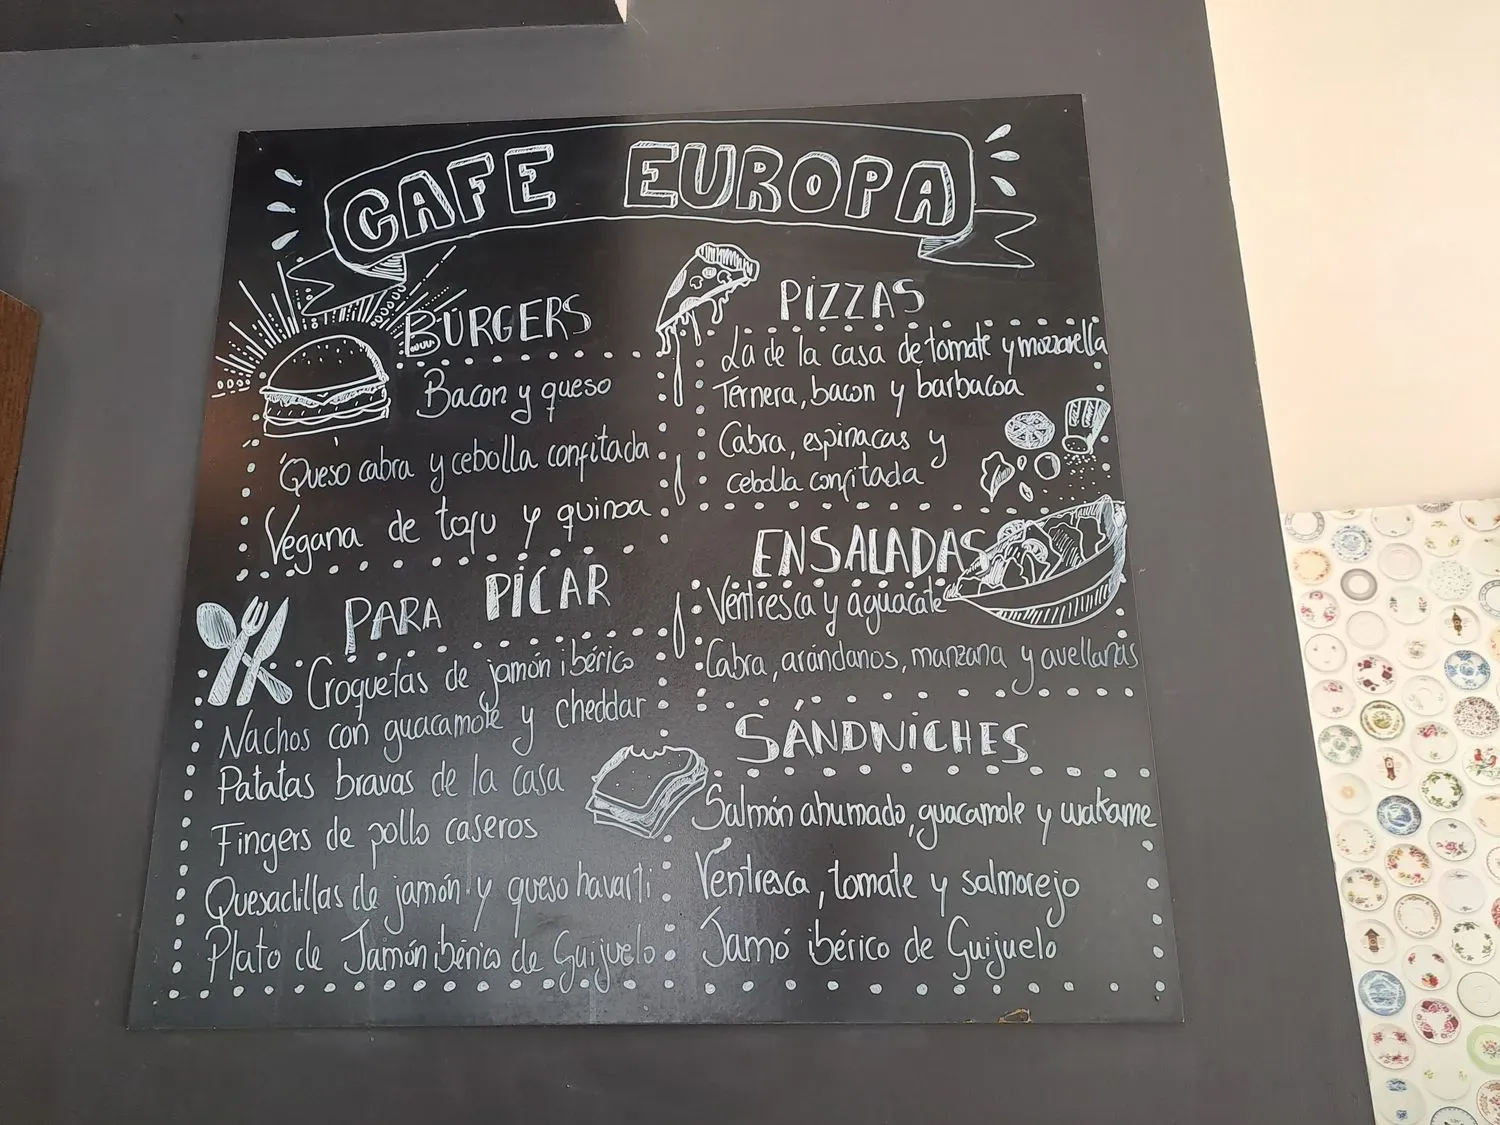 CAFE EUROPA
BURGERS
Bacon y queso
Queso cabra y cebolla confitada
Vegana de tofu y quinoa
PARA PICAR
Croquetas de jamón ibérico
Nachos con guacamole y cheddar
Patatas bravas de la casa
Fingers de pollo caseros
Quesadillas de jamón y queso havarti
Plato de Jamón ibérico de Guijuelo
PIZZAS
La de la casa de tomate y mozzarella
Ternera, bacon y barbacoa
Cabra, espinacas y
cebolla confitada
ENSALADAS
Ventresca y aguacate
Cabra, arándanos, manzana y avellanas
SÁNDWICHES
Salmón ahumado, guacamole y wakame
Ventresca, tomate y salmorejo
Jamó ibérico de Guijuelo